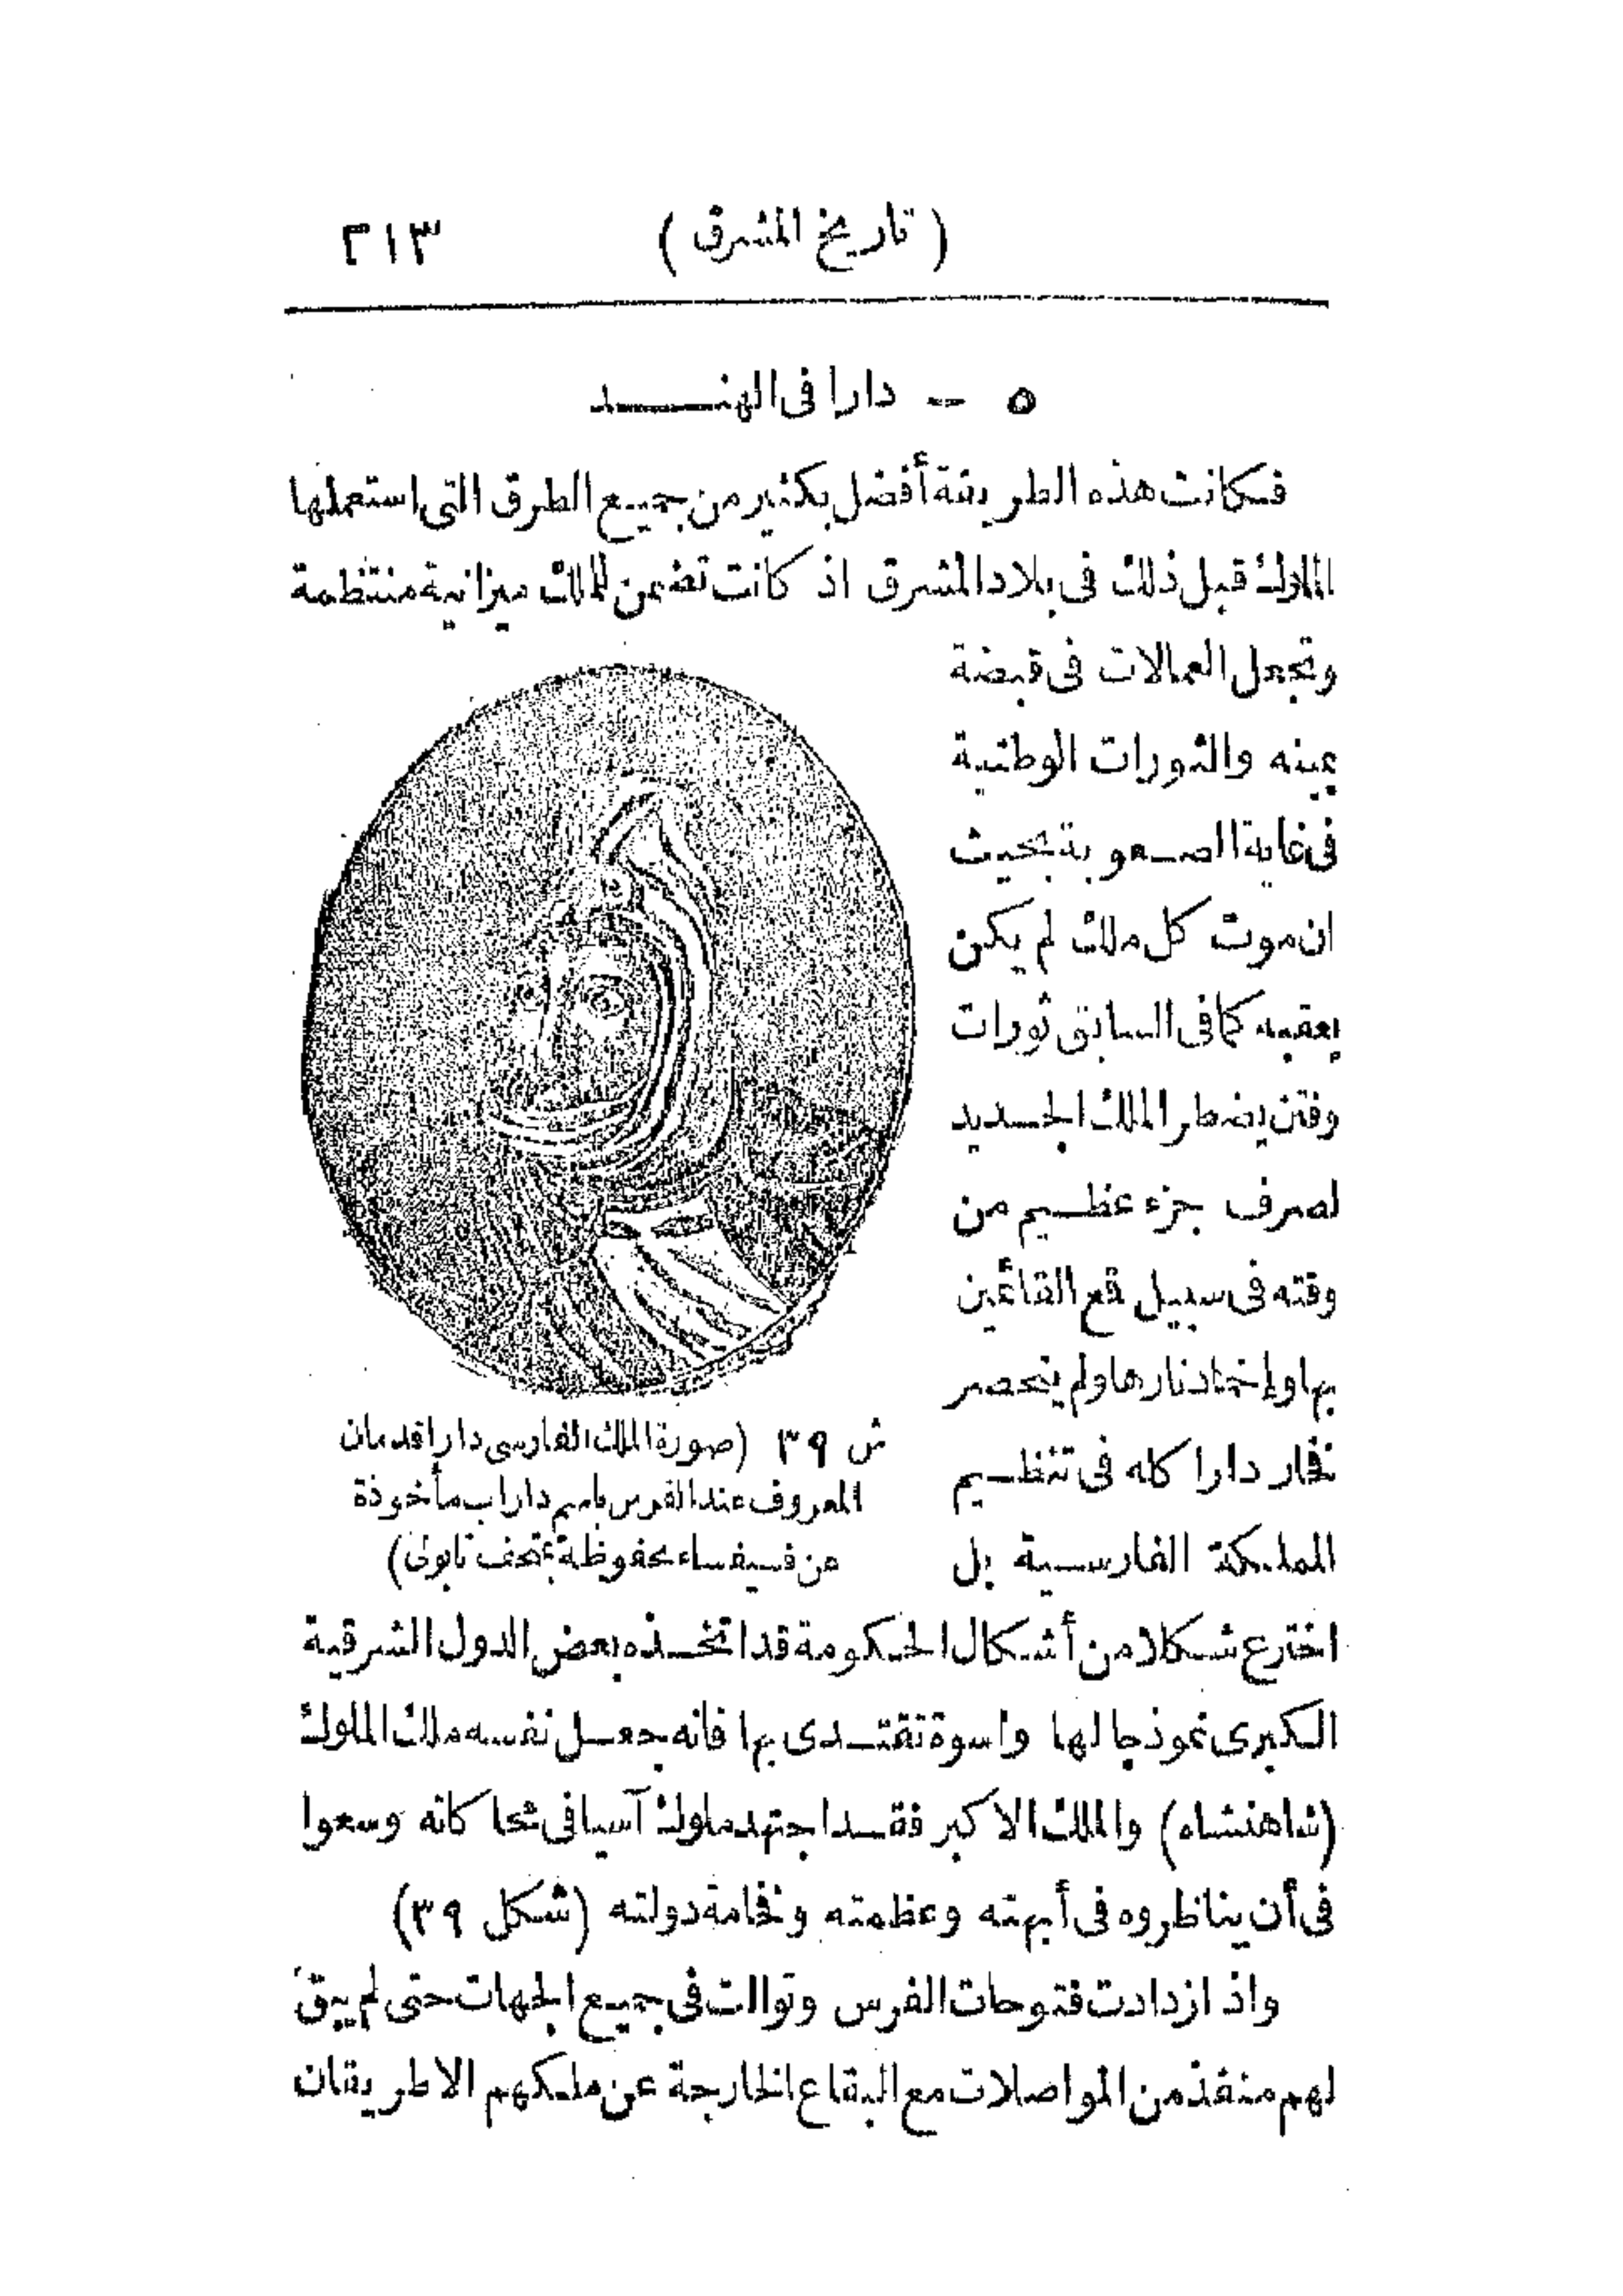 ( تاريخ المشرق ) ٣١٣
٥ - دارا فى الهنـــــد
فكانت هذه الطريقة أفضل بكثير من جميع الطرق التى استعملها
الملوك قبل ذلك فى بلاد المشرق اذ كانت تضمن للملك ميزانية منتظمة
وتجعل العمالات فى قبضة
يمينه والثورات الوطنية
فى غاية الصعوبة بحيث
ان موت كل ملك لم يكن
يعقبه كما فى السابق ثورات
وفتن يضطر الملك الجديد
لصرف جزء عظيم من
وقته فى سبيل قمع القائمين
بها وإخماد نارها ولم ينحصر
فخار دارا كله فى تنظيم
المملكة الفارسية بل
ش ٣٩ (صورة الملك الفارسى دارا قدمان
المعروف عند الفرس باسم داراب مأخوذة
من فسيفساء محفوظة بمتحف نابولى)
اخترع شكلا من أشكال الحكومة قد اتخذه بعض الدول الشرقية
الكبرى نموذجا لها واسوة تقتدى بها فانه جعل نفسه ملك الملوك
(شاهنشاه) والملك الاكبر فقد اجتهد ملوك آسيا فى محاكاته وسعوا
فى أن يناظروه فى أبهته وعظمته وفخامة دولته (شكل ٣٩)
واذ ازدادت فتوحات الفرس وتوالت فى جميع الجهات حتى لم يبق
لهم منفذ من المواصلات مع البقاع الخارجة عن ملكهم الا طريقان